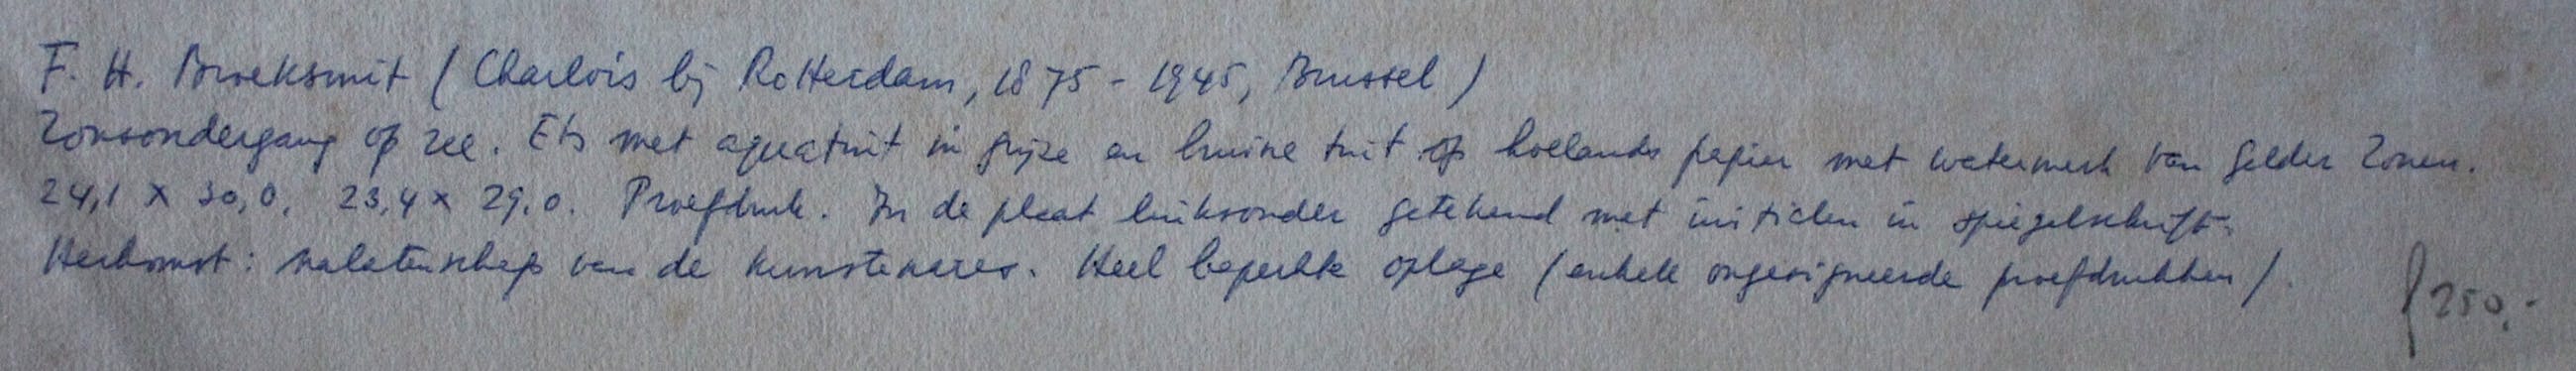 F. H. Broeksmit (Charlois bij Rotterdam, 1875 - 1945, Brussel)
Zonsondergang op zee. Ets met aquatint in grijze en bruine tint op hollands papier met watermerk Van Gelder Zonen.
24,1 x 30,0, 23,4 x 29,0. Proefdruk. In de plaat linksonder getekend met initialen in spiegelschrift.
Herkomst: nalatenschap van de kunstenares. Heel beperkte oplage (enkele ongesigneerde proefdrukken).
ƒ 250,-